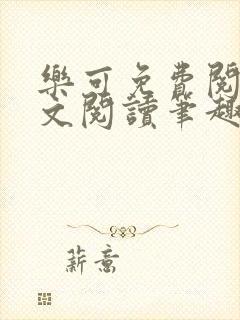 樂可免費閱
文閱讀筆趣
薪意